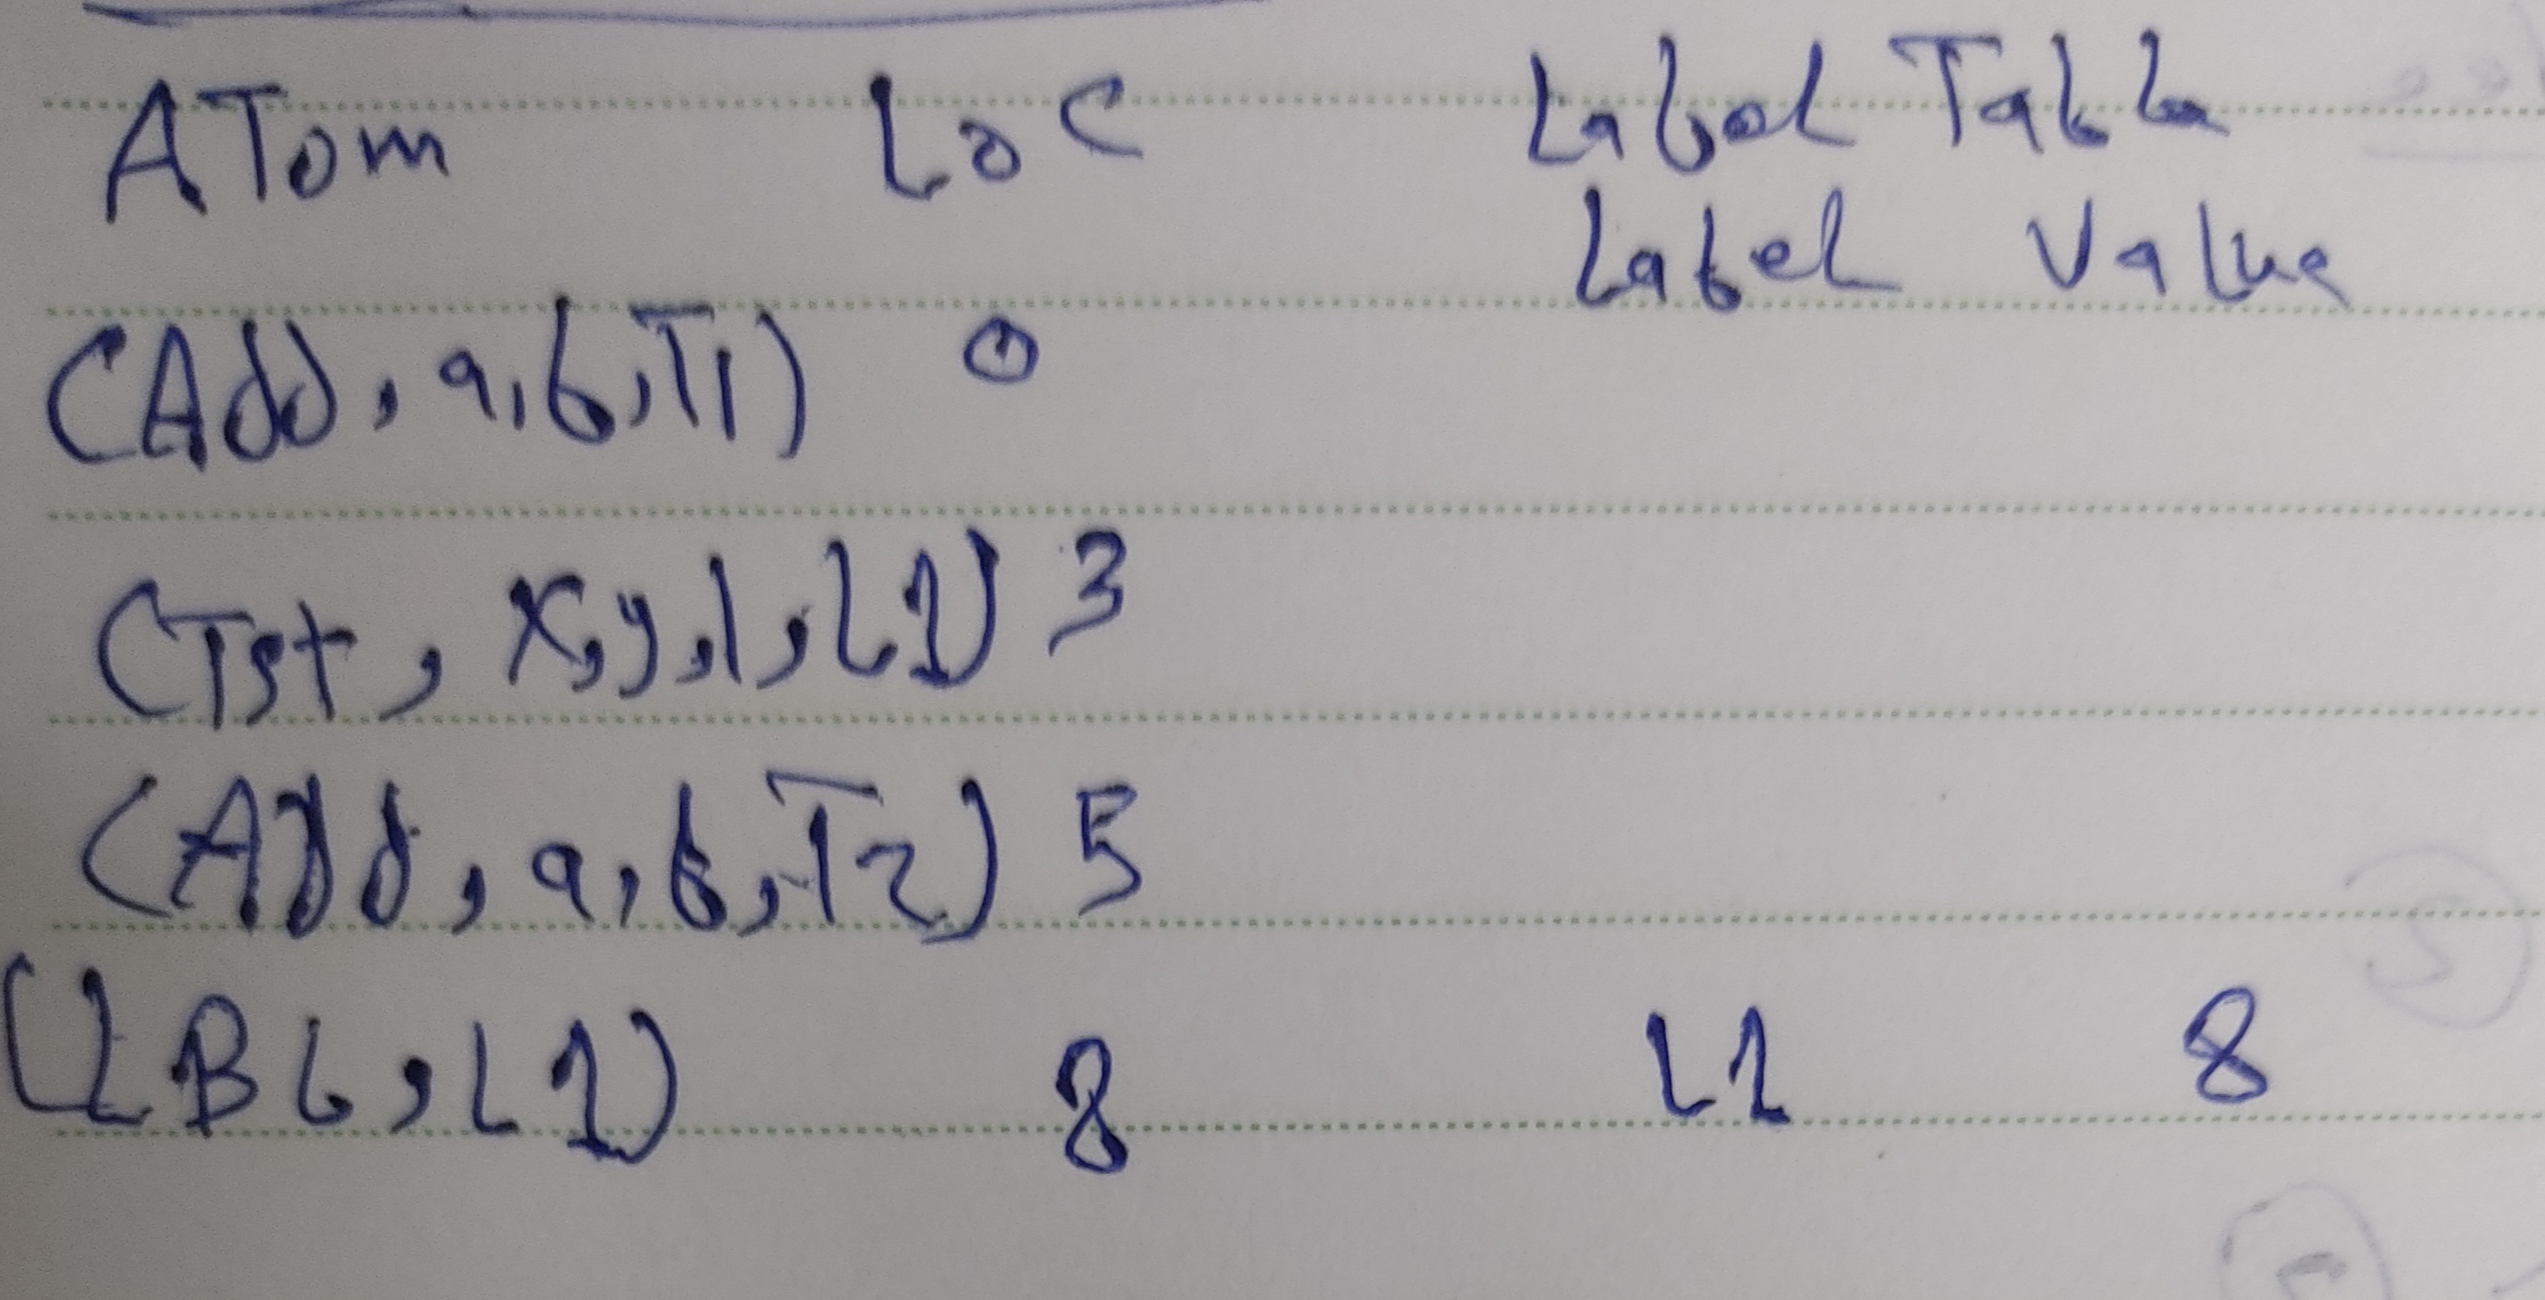 ATom Loc Label Table
Label Value
(Add, a,b,T1) 0
(Tst, x,y,1,L1) 3
(Add, a,b,T2) 5
(LBL,L1) 8 L1 8